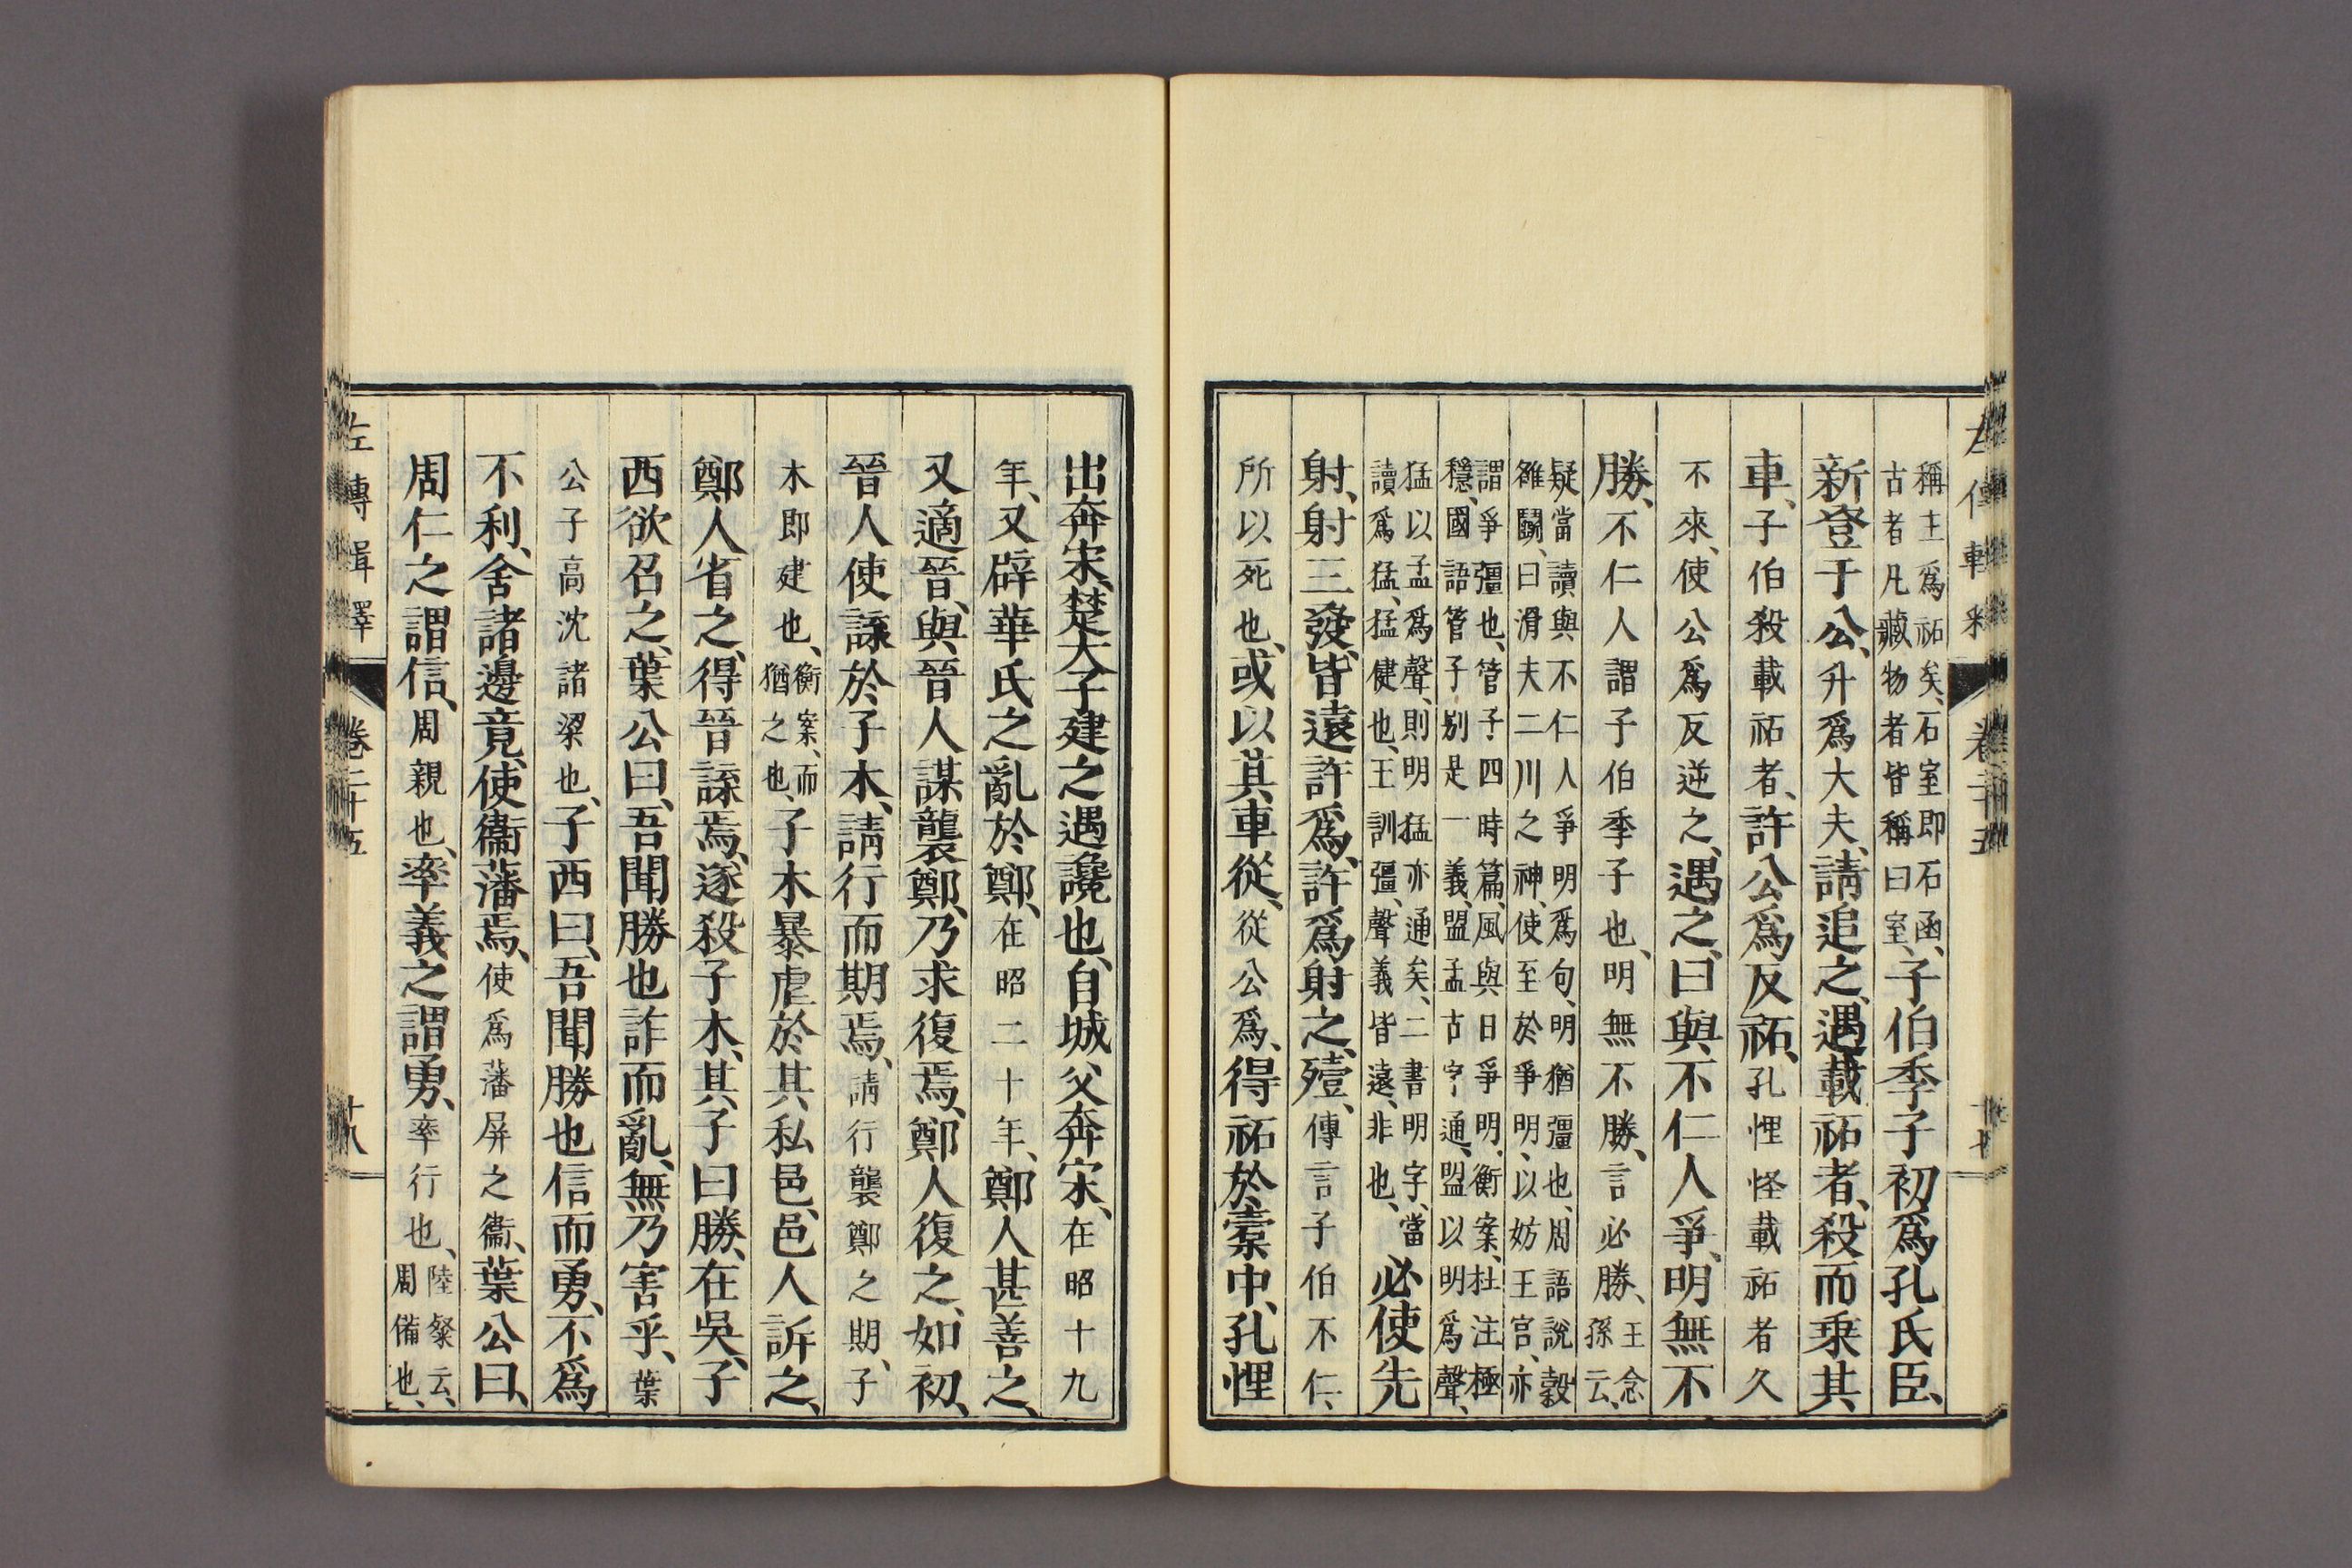 稱主爲祏矣、石室即石函、
古者凡藏物者皆稱曰室、子伯季子初爲孔氏臣、
新登于公、升爲大夫、請追之、遇載祏者、殺而乘其
車、子伯殺載祏者、許公爲反祏、孔悝怪載祏者久
不來、使公爲反逆之、遇之、曰、與不仁人爭、明無不
勝、不仁人謂子伯季子也、明無不勝、言必勝、王念
孫云、
疑當讀與不仁人爭明爲句、明猶彊也、周語說穀
雒鬭、曰、滑夫二川之神、使至於爭明、以妨王宮、亦
謂爭彊也、管子四時篇、風與日爭明、衡案、杜注極
穩、國語管子別是一義、盟孟古字通、盟以明爲聲、
猛以孟爲聲、則明猛亦通矣、二書明字、當
讀爲猛、猛健也、王訓彊、聲義皆遠、非也、必使先
射、射三發、皆遠許爲、許爲射之、殪、傳言子伯不仁、
所以死也、或以其車從、從公爲、得祏於橐中、孔悝
出奔宋、楚大子建之遇讒也、自城父奔宋、在昭十九
年、又辟華氏之亂於鄭、在昭二十年、鄭人甚善之、
又適晉、與晉人謀襲鄭、乃求復焉、鄭人復之、如初、
晉人使諜於子木、請行而期焉、請行襲鄭之期、子
木即建也、衡案、而
猶之也、子木暴虐於其私邑、邑人訴之、
鄭人省之、得晉諜焉、遂殺子木、其子曰勝、在吳、子
西欲召之、葉公曰、吾聞勝也詐而亂、無乃害乎、葉
公子高沈諸梁也、子西曰、吾聞勝也信而勇、不爲
不利、舍諸邊竟、使衞藩焉、使爲藩屏之衞、葉公曰、
周仁之謂信、周親也、率義之謂勇、率行也、陸粲云、
周備也、
左傳輯釋 卷二十五 十八